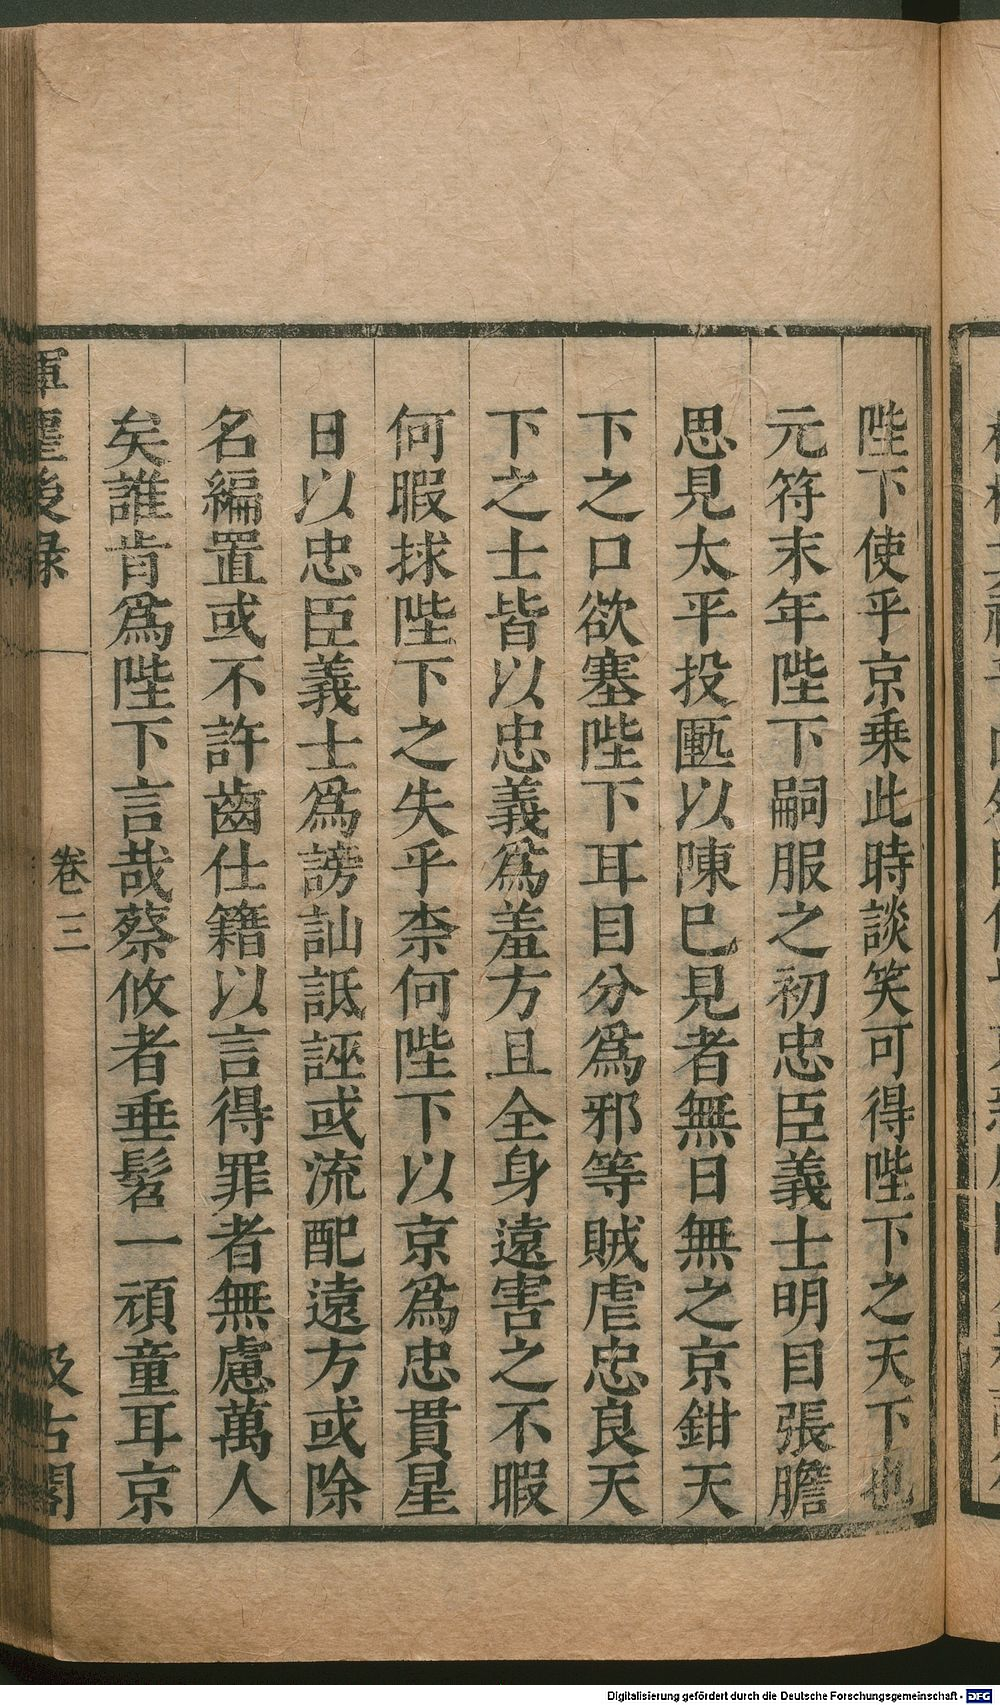 陛下使乎京乗此時談笑可得陛下之天下也
元符末年陛下嗣服之初忠臣義士明目張膽
思見太平投匭以陳已見者無日無之京鉗天
下之口欲塞陛下耳目分爲邪等賊虐忠良天
下之士皆以忠義爲羞方且全身遠害之不暇
何暇捄陛下之失乎柰何陛下以京爲忠貫星
日以忠臣義士爲謗訕詆誣或流配遠方或除
名編置或不許齒仕籍以言得罪者無慮萬人
矣誰肯爲陛下言哉蔡攸者垂髫一頑童耳京
軍塵後录
卷三
汲古閣
Digitalisierung gefördert durch die Deutsche Forschungsgemeinschaft - DFG